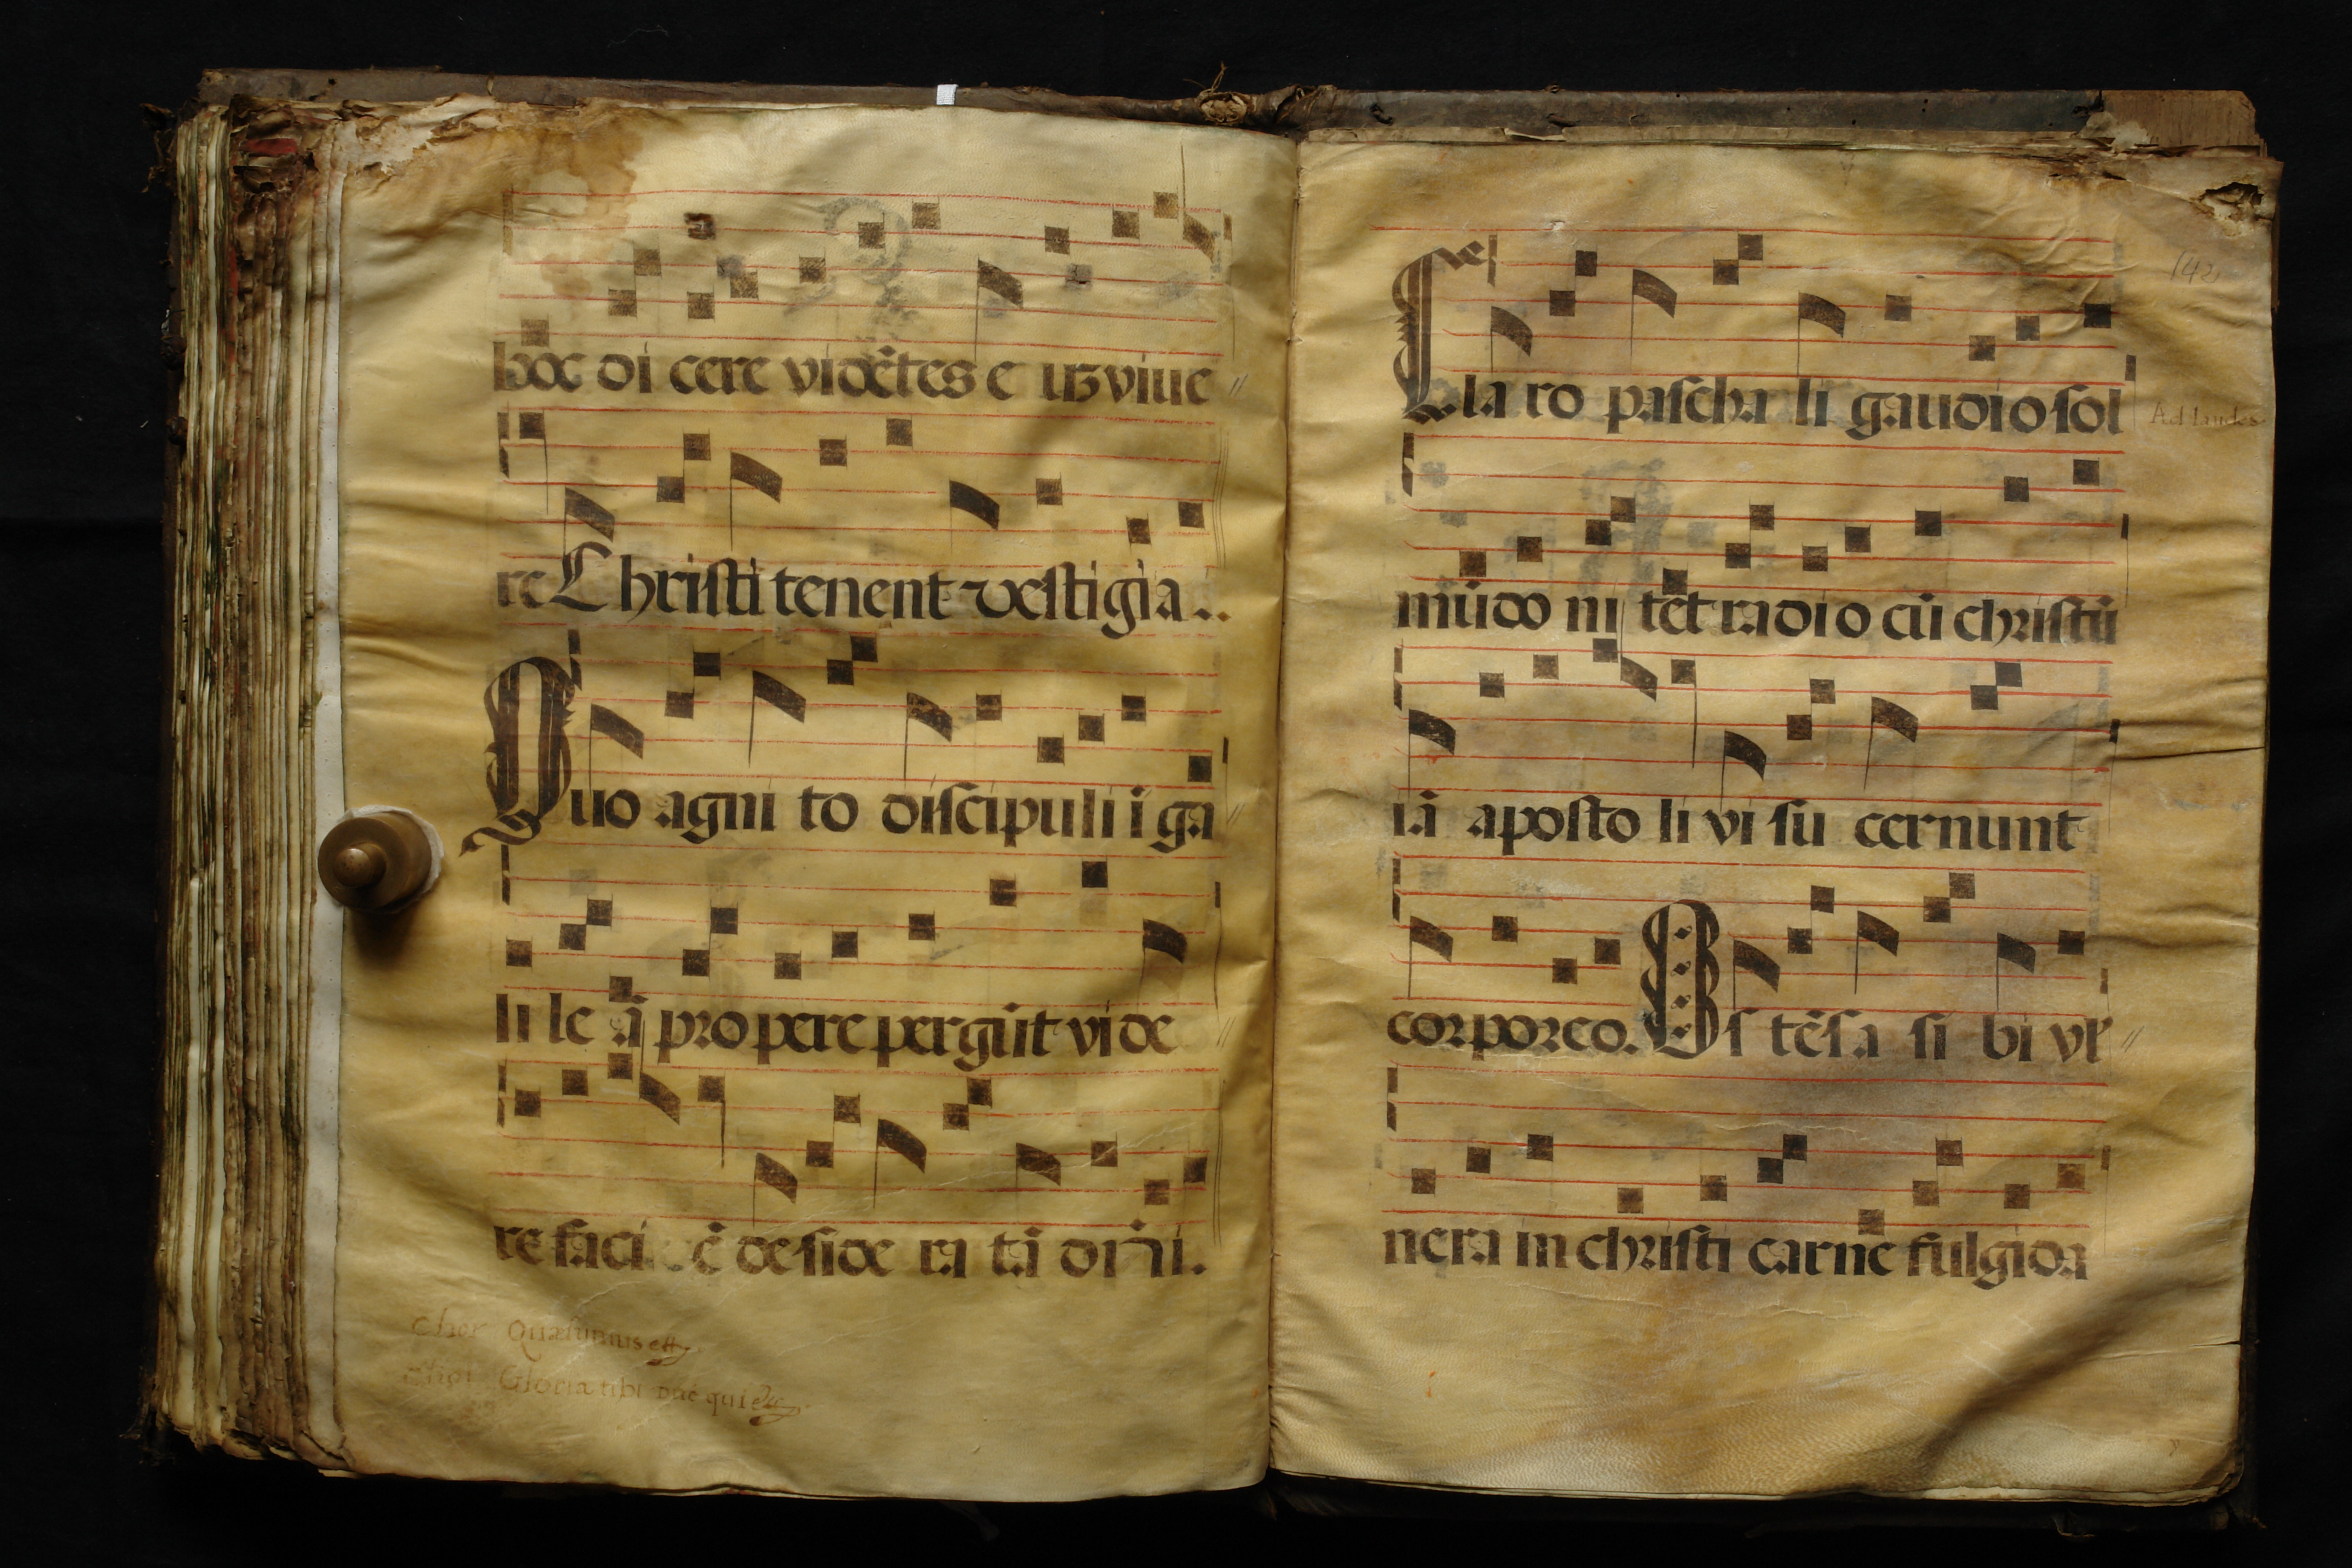 hoc di cere vidētes e uꝫ viue
re Christi tenent vestigia..
Quo agni to discipuli ī ga
li le ā propere pergūt vi de
re faci ē de side ra tā dñi.
Chor Quæsumus ett
Gloria tibi dnē qui
Cla ro pascha li gaudio sol
Ad laudes
142
mūdo ni tet radio cū christū
iā aposto li vi su cernunt
corporeo. Os tēsa si bi vl
nera in christi carne fulgida